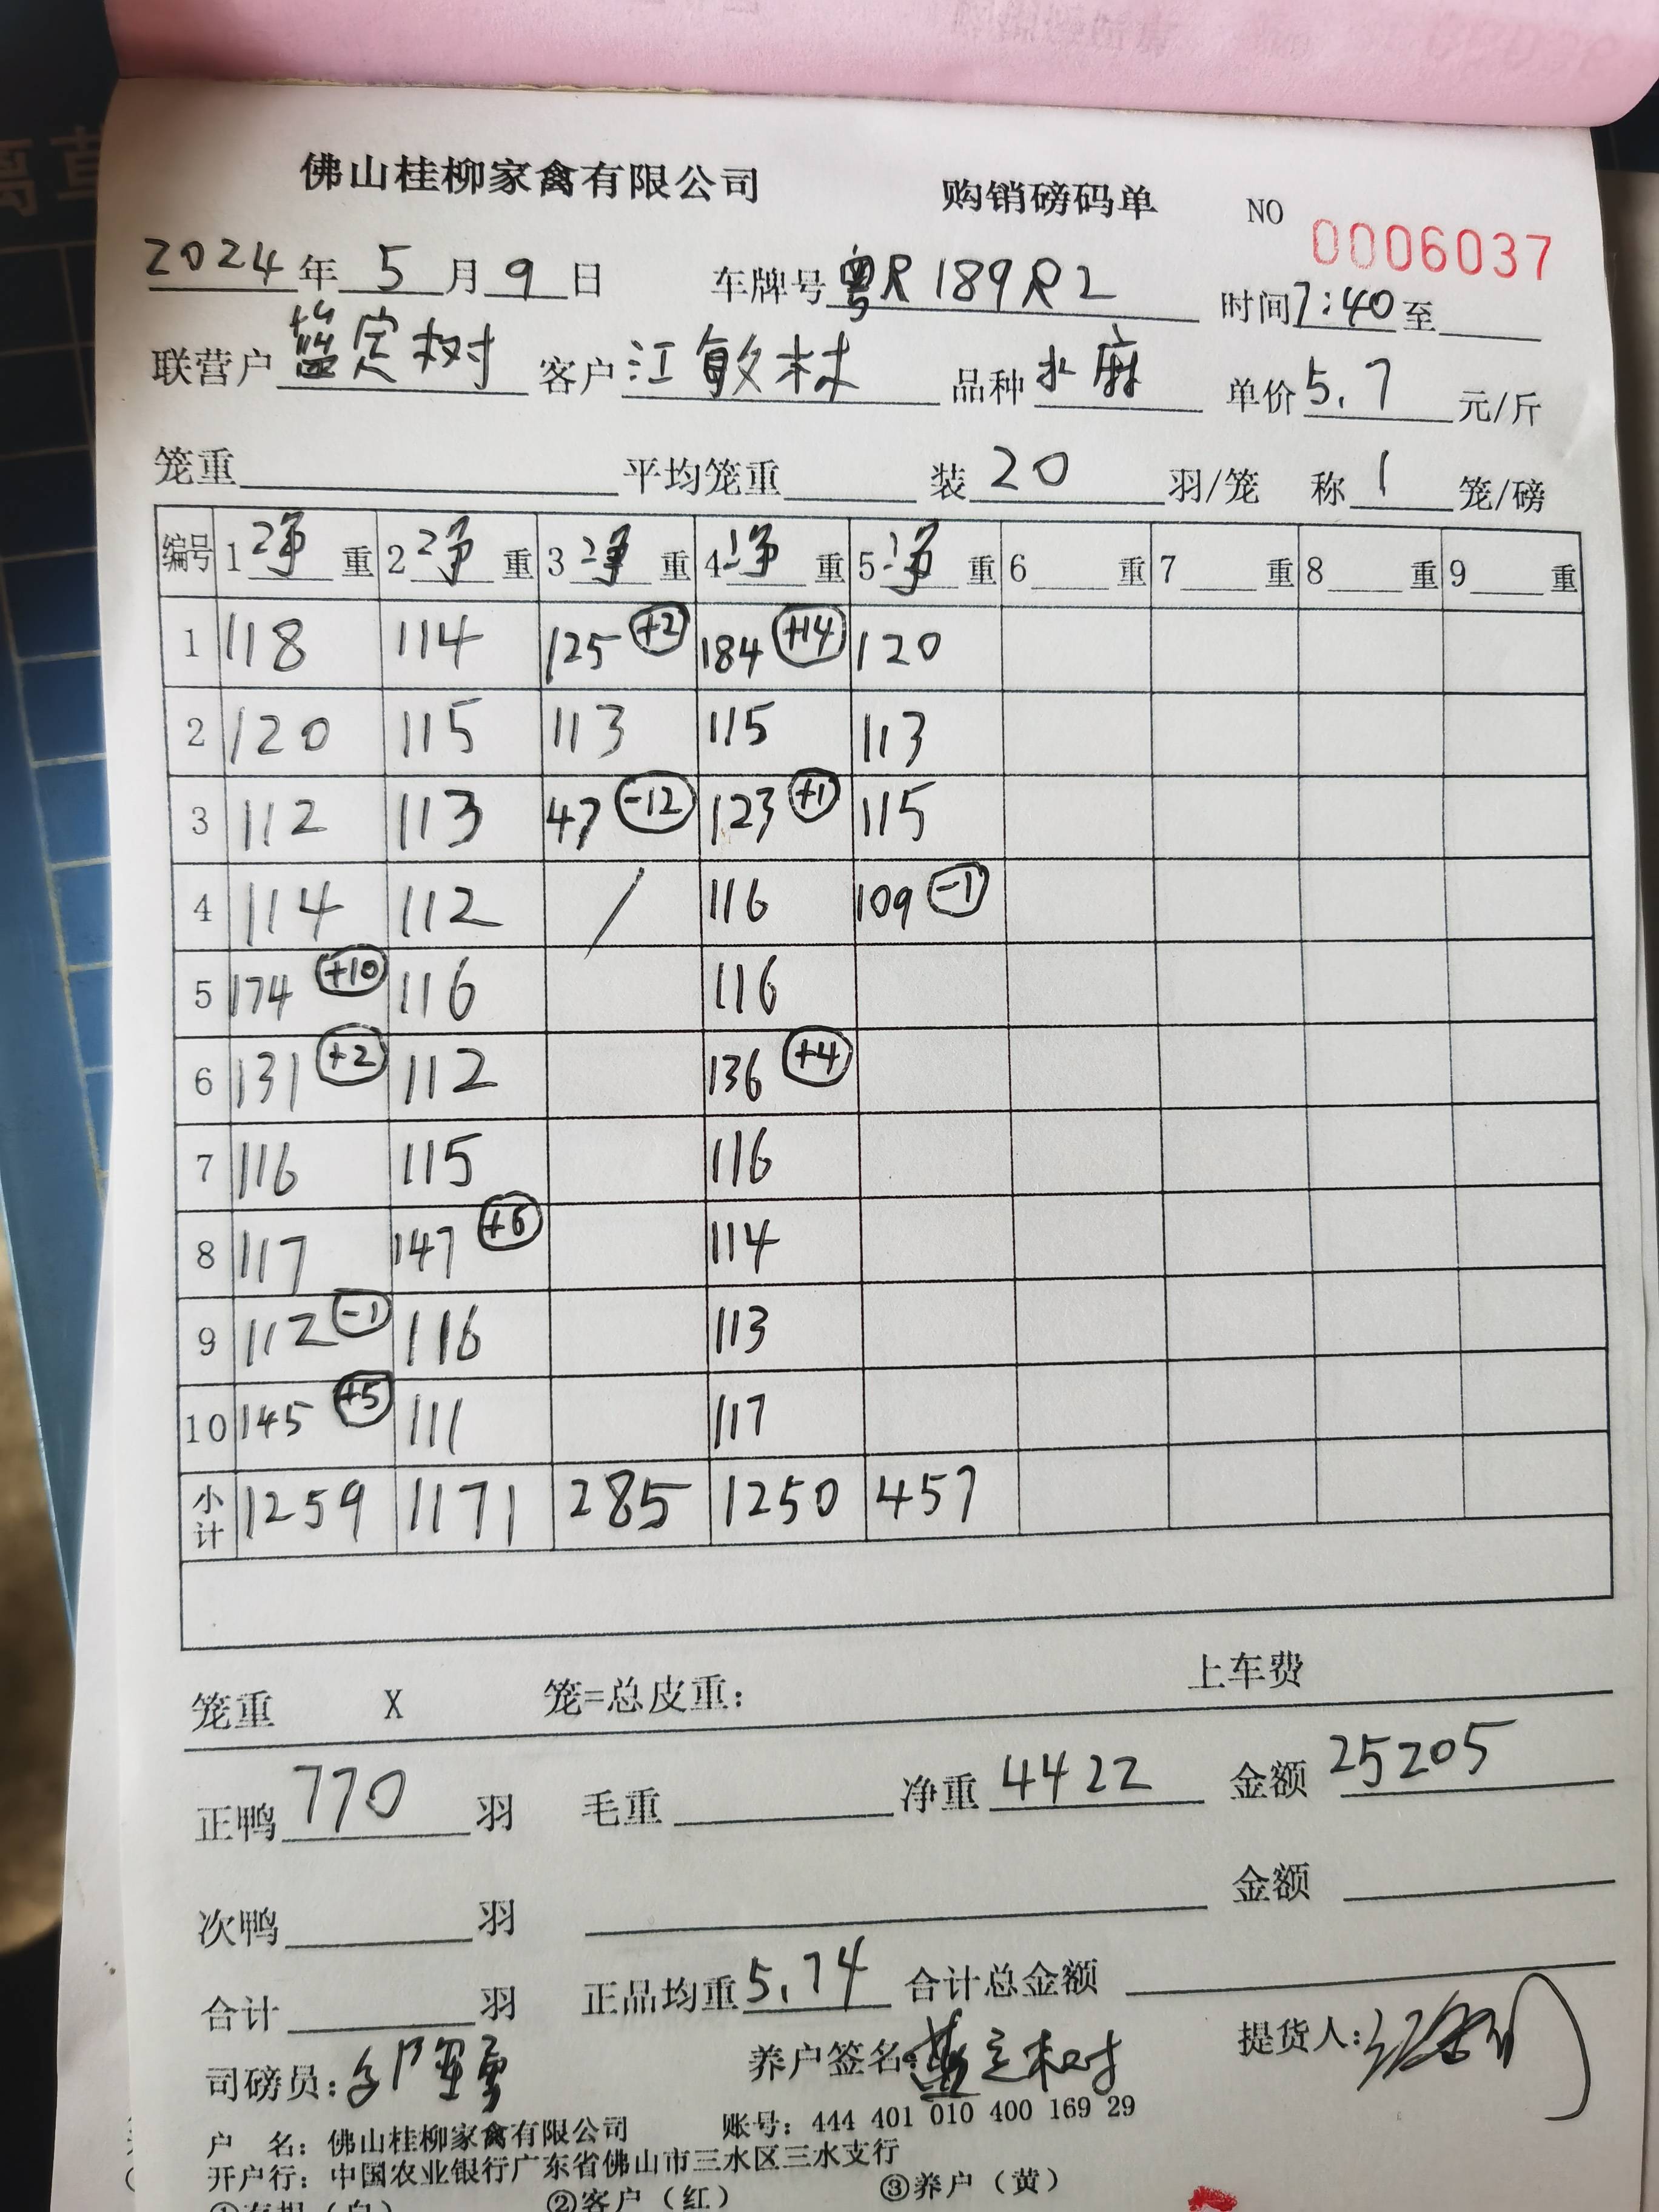 佛山桂柳家禽有限公司 购销磅码单 NO 0006037
2024年5月9日 车牌号粤R189R2 时间7:40至
联营户 蓝定树 客户 江敏林 品种 水麻 单价5.7元/斤
笼重 平均笼重 装20羽/笼 称1笼/磅
编号 1净重 2净重 3净重 4净重 5净重 6重 7重 8重 9重
1 118 114 125 +2 184 +14 120
2 120 115 113 115 113
3 112 113 47 -12 123 +1 115
4 114 112 / 116 109 -1
5 174 +10 116 116
6 131 +2 112 136 +4
7 116 115 116
8 117 147 +6 114
9 112 -1 116 113
10 145 +5 111 117
小计 1259 1171 285 1250 457
笼重 X 笼=总皮重: 上车费
正鸭770羽 毛重 净重4422 金额25205
次鸭 羽 金额
合计 羽 正品均重5.74 合计总金额
司磅员: 养户签名:蓝定树 提货人:
户 名: 佛山桂柳家禽有限公司 账号: 444 401 010 400 169 29
开户行: 中国农业银行广东省佛山市三水区三水支行
②客户(红) ③养户(黄)